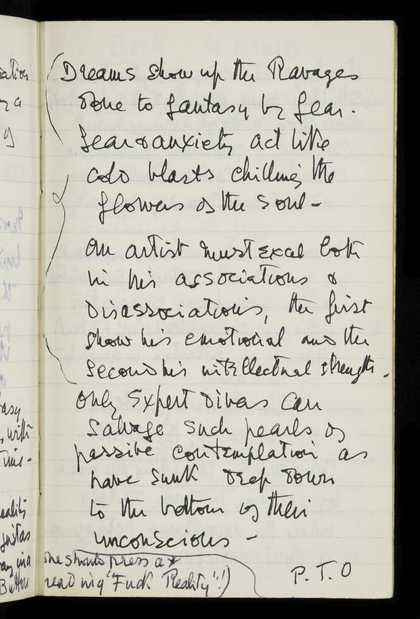 Dreams show up the Ravages
done to fantasy by fear.
fear & anxiety act like
cold blasts chilling the
flowers of the soul –
An artist must excel both
in his associations &
Disassociations, the first
show his emotional and the
second his intellectual strength.
Only Expert Divers can
salvage such pearls of
passive contemplation as
have sunk deep down
to the bottom of their
unconscious –
One should press a
reading "Fuck Reality"!)
P.T.O
ation
eality
Button
with